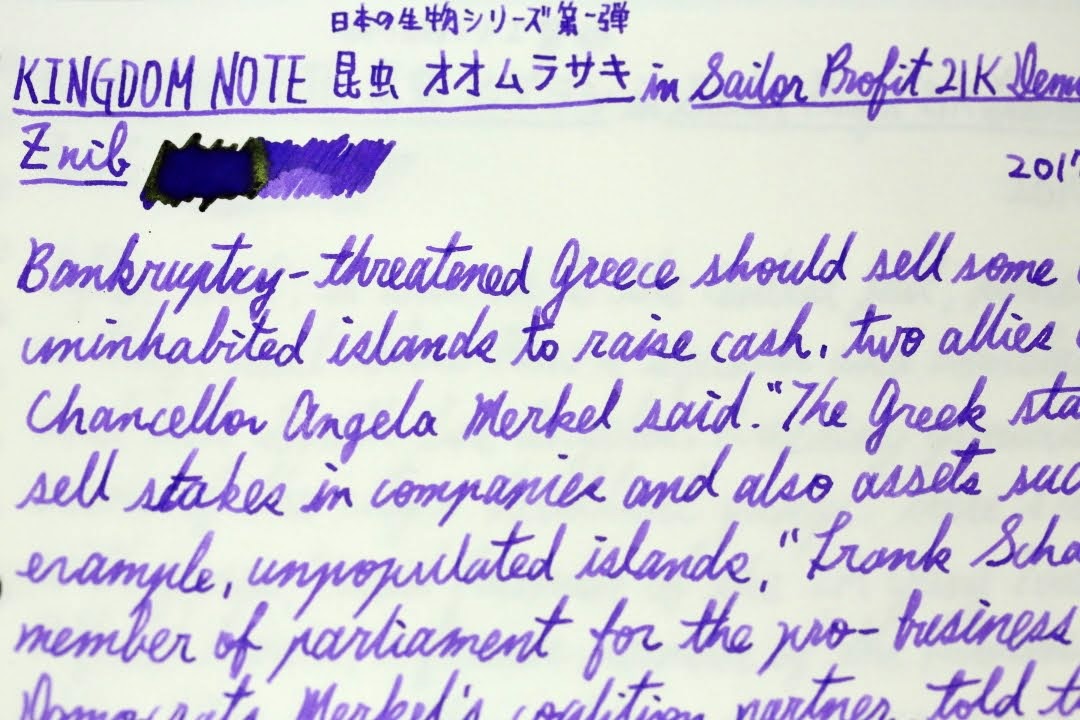 日本の生物シリーズ第一弾
KINGDOM NOTE 昆虫 オオムラサキ in Sailor Profit 21K
Z nib
Bankruptcy-threatened Greece should sell some
uninhabited islands to raise cash, two allies
Chancellor Angela Merkel said. "The Greek
sell stakes in companies and also assets
example, unpopulated islands," Frank
member of parliament for the pro-business
Democrats, Merkel's coalition partner, told